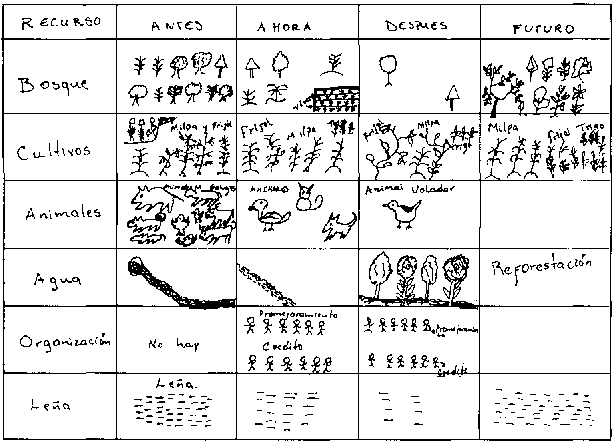 RECURSO ANTES AHORA DESPUES FUTURO
Bosque
Cultivos Milpa y Frijol Frijol Milpa Trigo Frijol Milpa Frijol Milpa Frijol Trigo
Animales Animal Volador
Agua Reforestación
Organización No hay Promejoramiento
Credito
Leña Leña.